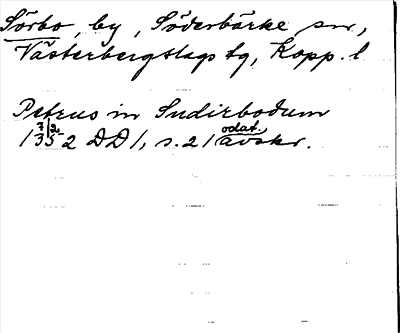 Sörbo, by, Söderbärke sn,
Västerbergslags tg, Kopp. l
Petrus in Sudirbodum
1352 7/2 DD 1, s. 21 odat. avskr.